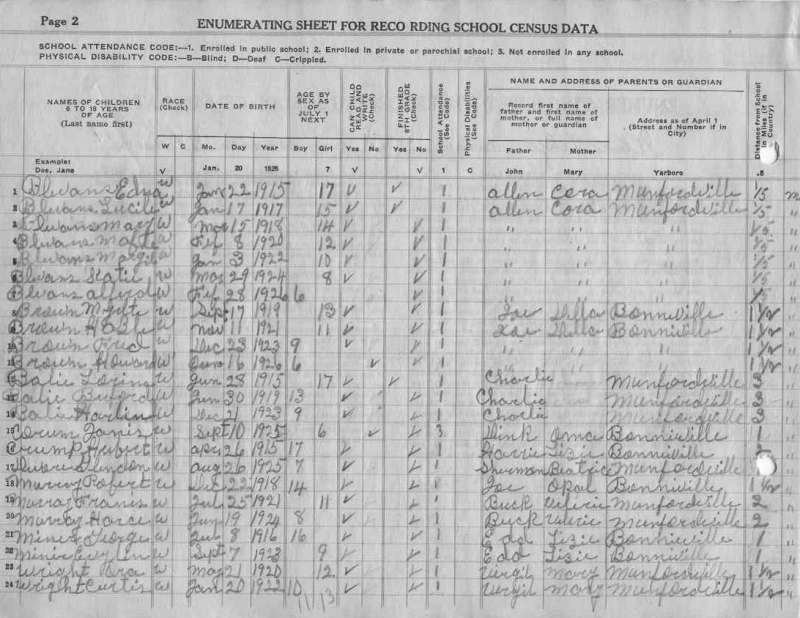 Page 2
ENUMERATING SHEET FOR RECO RDING SCHOOL CENSUS DATA
SCHOOL ATTENDANCE CODE:—1. Enrolled in public school; 2. Enrolled in private or parochial school; 3. Not enrolled in any school.
PHYSICAL DISABILITY CODE:—B—Blind; D—Deaf C—Crippled.
NAMES OF CHILDREN 6 TO 18 YEARS OF AGE (Last name first)
RACE (Check)
DATE OF BIRTH
AGE BY SEX AS OF JULY 1 NEXT
CAN CHILD READ AND WRITE (Check)
FINISHED 8TH GRADE (Check)
School Attendance (See Code)
Physical Disabilities (See Code)
NAME AND ADDRESS OF PARENTS OR GUARDIAN
Record first name of father and first name of mother, or full name of mother or guardian
Address as of April 1 (Street and Number if in City)
Distance from School in Miles (if in Country)
W C Mo. Day Year Boy Girl Yes No Yes No Father Mother
Example: Doe, Jane V Jan. 20 1925 7 V V 1 C John Mary Yarboro .5
1 Blevans Edna W Jan 22 1915 17 V V 1 Allen Cora Munfordville 1/5 m
2 Blevans Lucile W Jan 17 1917 15 V V 1 Allen Cora Munfordville 1/5 "
3 Blevans Mary W Mar 15 1918 14 V V 1 " " " 1/5 "
4 Blevans W Feb 8 1920 12 V V 1 " " " 1/5 "
5 Blevans W Jan 3 1922 10 V V 1 " " " 1/5 "
6 Blevans Katie W Mar 29 1924 8 V V 1 " " " 1/5 "
Blevans W Feb 28 1926 6 V 1 " " " 1/5 "
8 Brown W Sept 17 1919 13 V V 1 Joe Bonnieville 1 1/2 "
Brown W Nov 11 1921 11 V V 1 Joe Bonnieville 1 1/2 "
10 Brown W Dec 23 1923 9 V V 1 " " " 1 1/2 "
11 Brown Howard W 16 1926 6 V V 1 " " " 1 1/2 "
12 W Jun 28 1915 17 V V 1 Charlie Munfordville 3 "
13 Buford W Jun 30 1919 13 V V 1 Charlie Munfordville 3 "
14 Harlin W Dec 21 1923 9 V V 1 Charlie Munfordville 3 "
15 Corum Janis W Sept 10 1925 6 V V 3 Oma Bonnieville 1 "
16 Crump Hubert W Apr 26 1915 17 V V 1 Lizie Bonnieville "
17 W Aug 26 1925 7 V V 1 Sherman Beatrice Munfordville "
18 Murry Robert W Dec 22 1918 14 V V 1 Joe Opal Bonnieville 1 1/2 "
19 Murray Francis W Jul 25 1921 11 V V 1 Buck Munfordville 2 "
20 Murray W Jun 19 1924 8 V V 1 Buck Munfordville 2 "
21 George W 8 1916 16 V V 1 Edd Lizie Bonnieville 1 "
22 W Sept 7 1923 9 V V 1 Edd Lizie Bonnieville 1 "
23 Wright W May 21 1920 12 V V 1 Virgil Mary Munfordville 1 1/2 "
24 Wright Curtis W Jan 20 1922 10 V V 1 Virgil Mary Munfordville 1 1/2 "
11 13